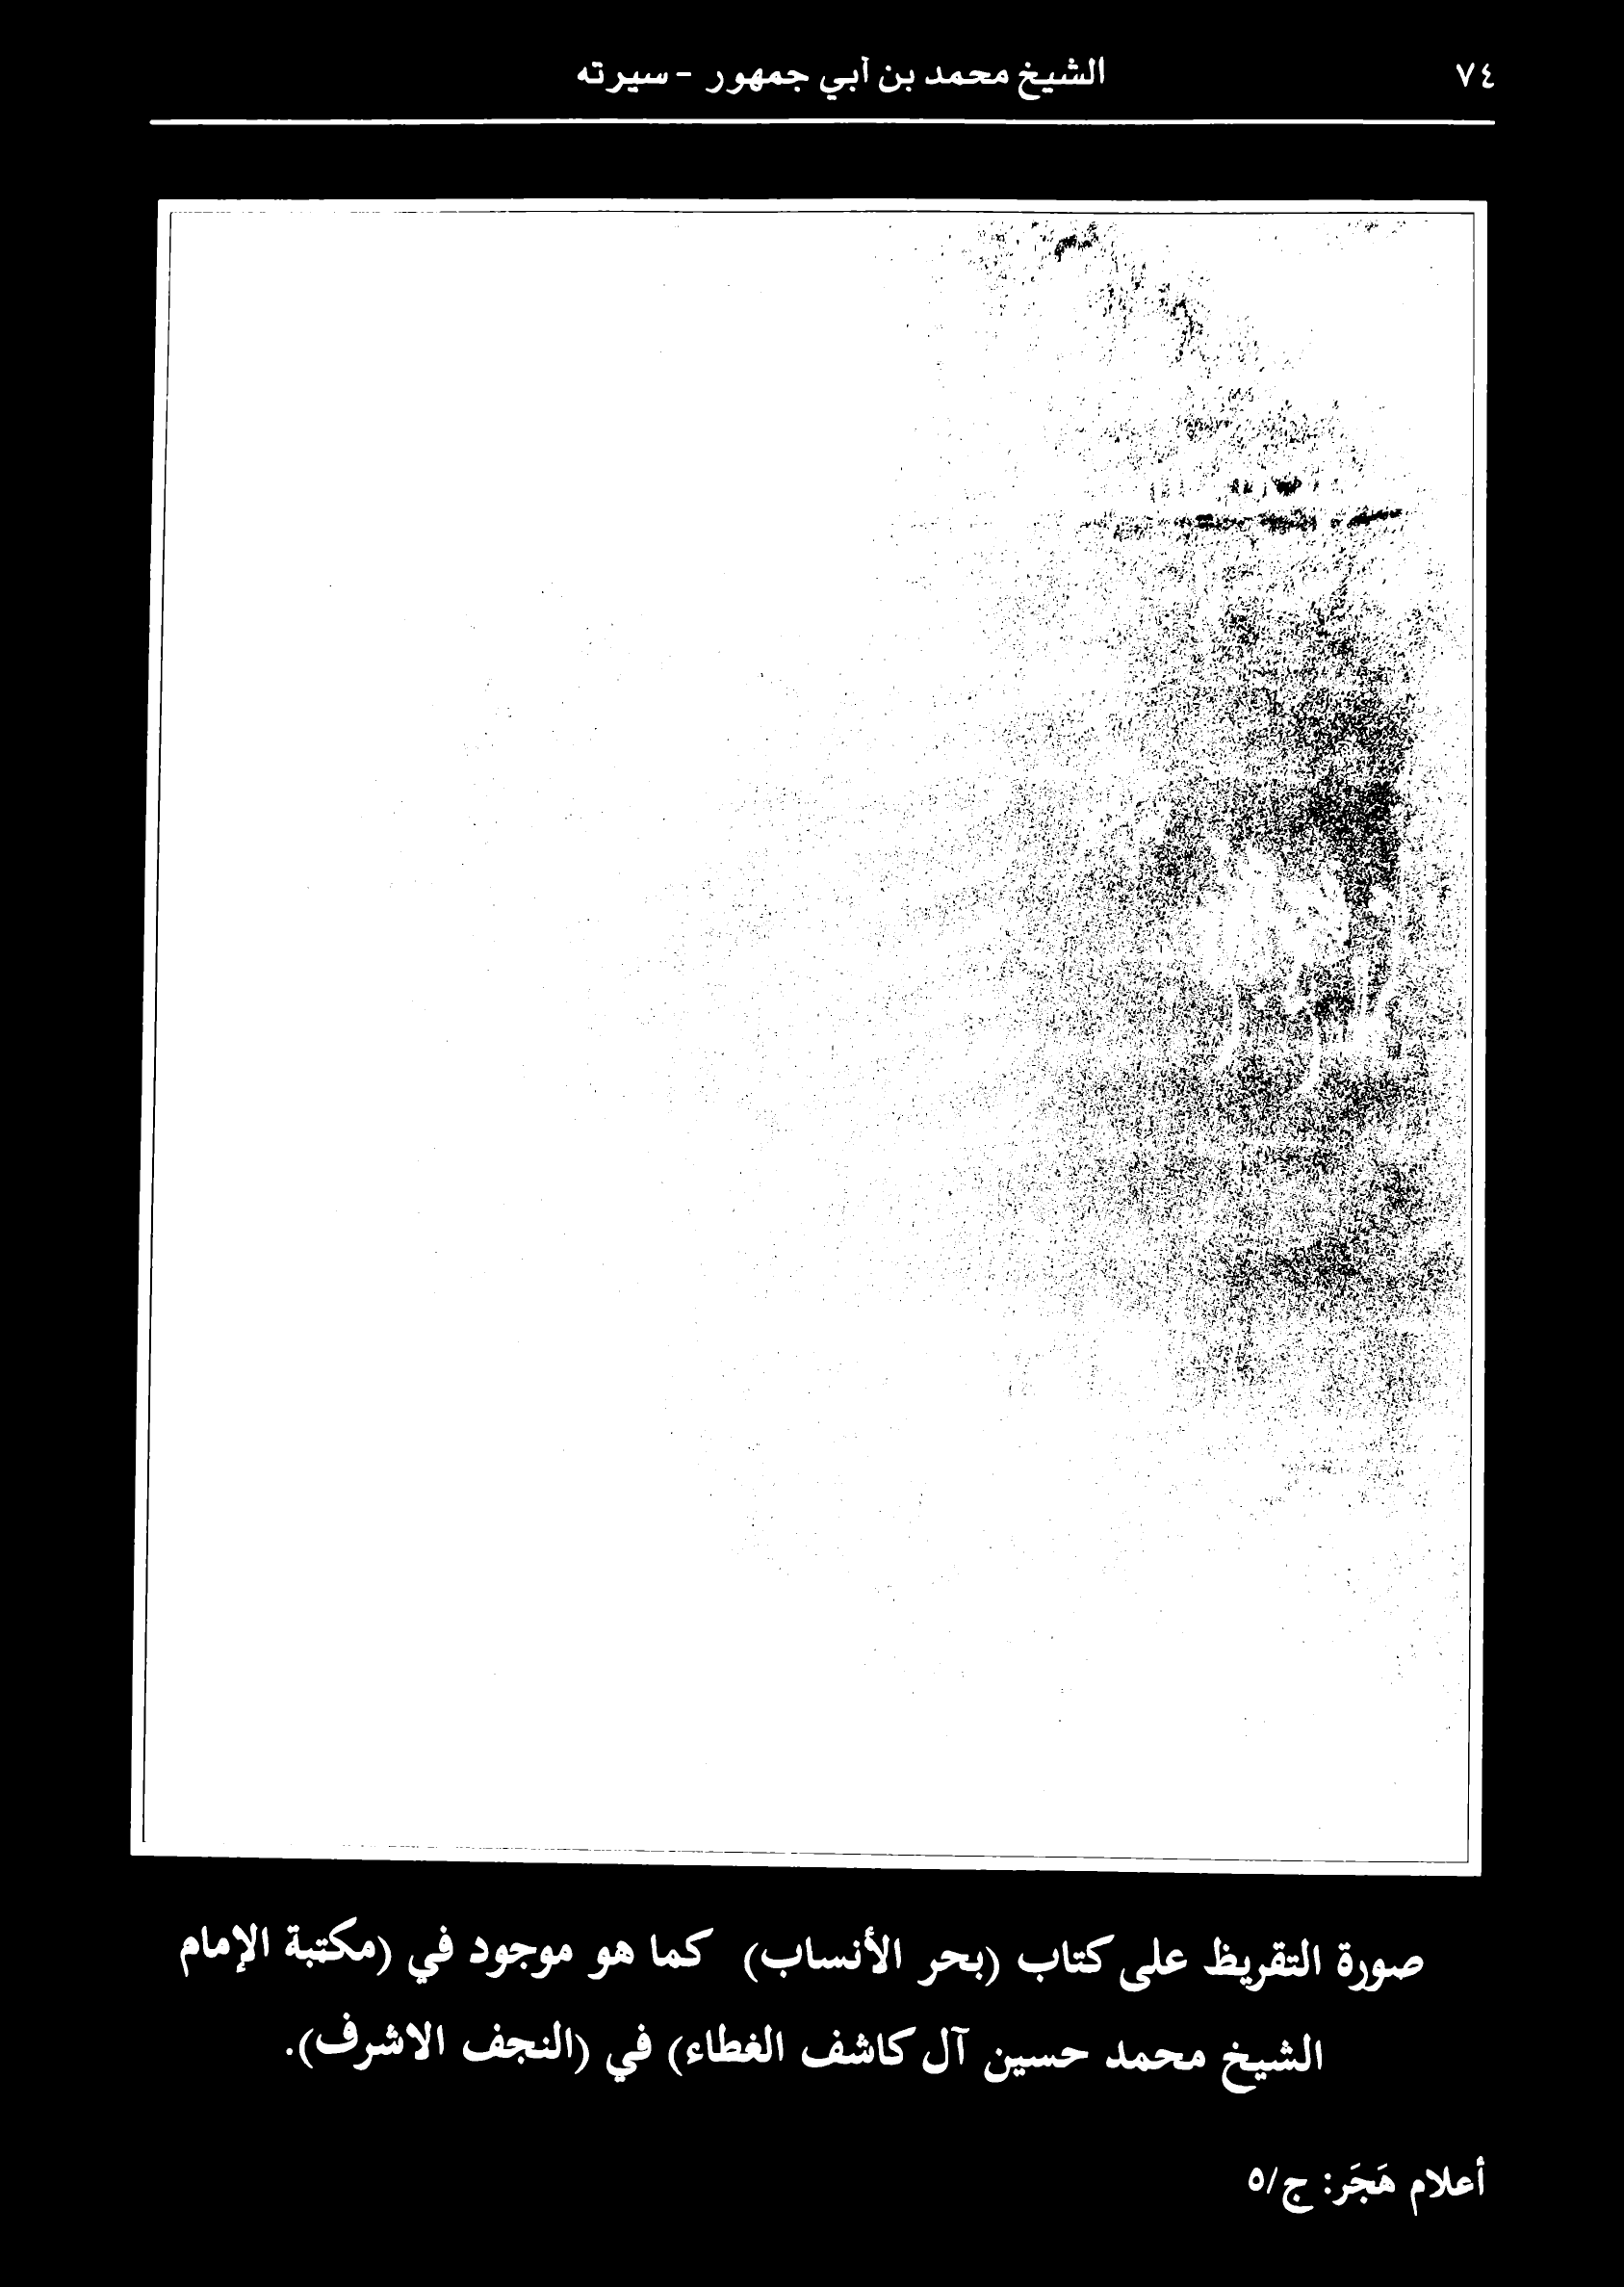 ٧٤
الشيخ محمد بن أبي جمهور - سيرته
صورة التقريظ على كتاب (بحر الأنساب) كما هو موجود في (مكتبة الإمام
الشيخ محمد حسين آل كاشف الغطاء) في (النجف الاشرف).
أعلام هَجَر: ج/٥